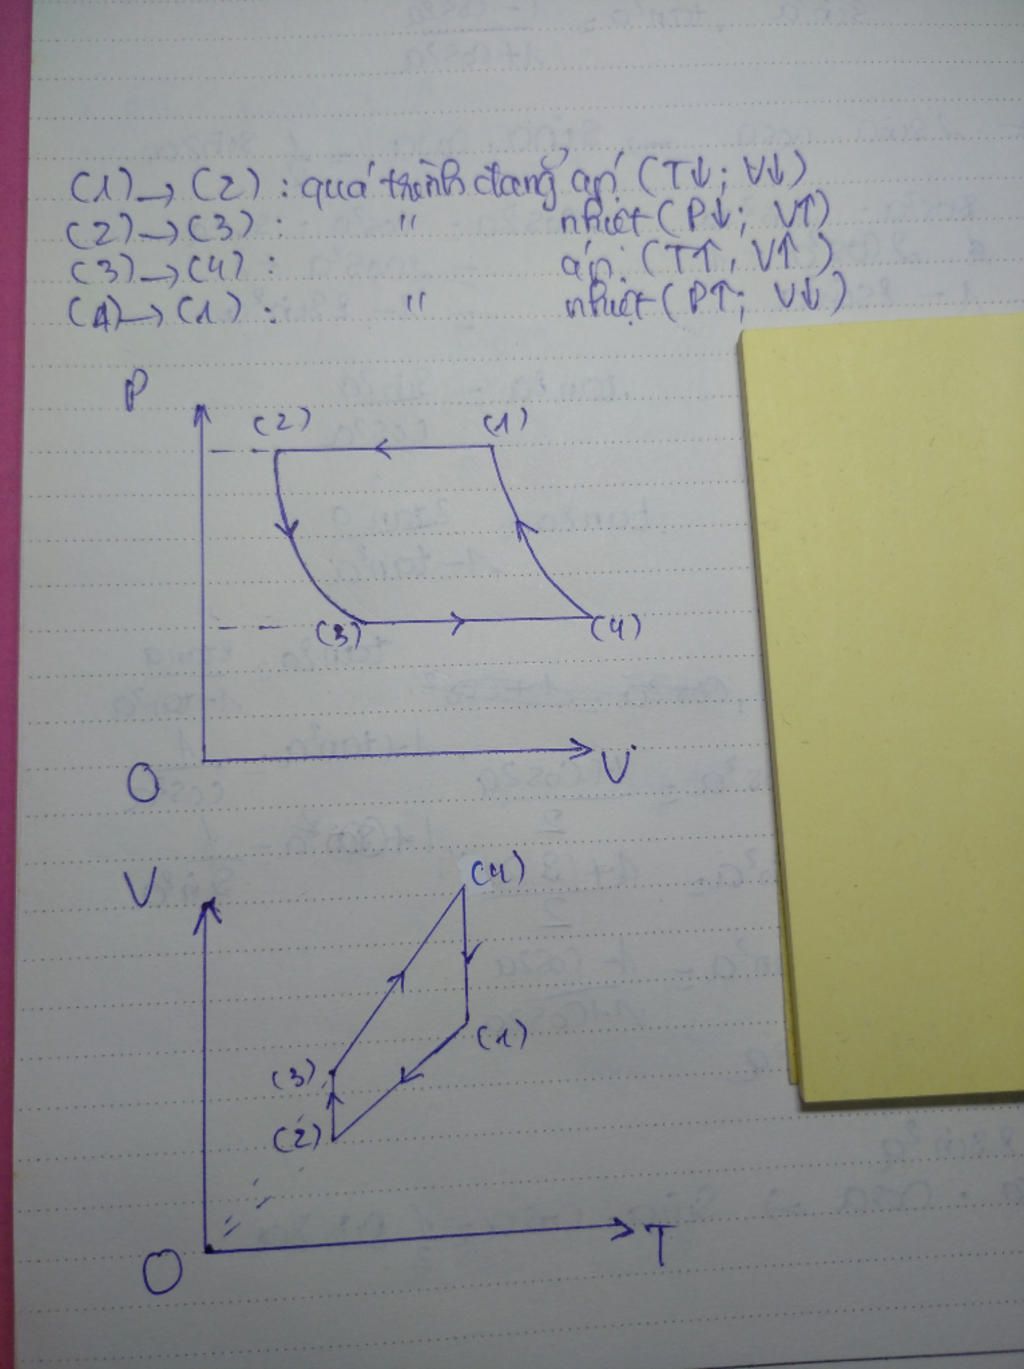 (1) → (2) : quá trình đẳng áp (T↓; V↓)
(2) → (3) : " nhiệt (P↓; V↑)
(3) → (4) : áp. (T↑, V↑)
(4) → (1) : " nhiệt (P↑; V↓)
P
(2) (1)
(3) (4)
O V
V (4)
(1)
(3)
(2)
O T